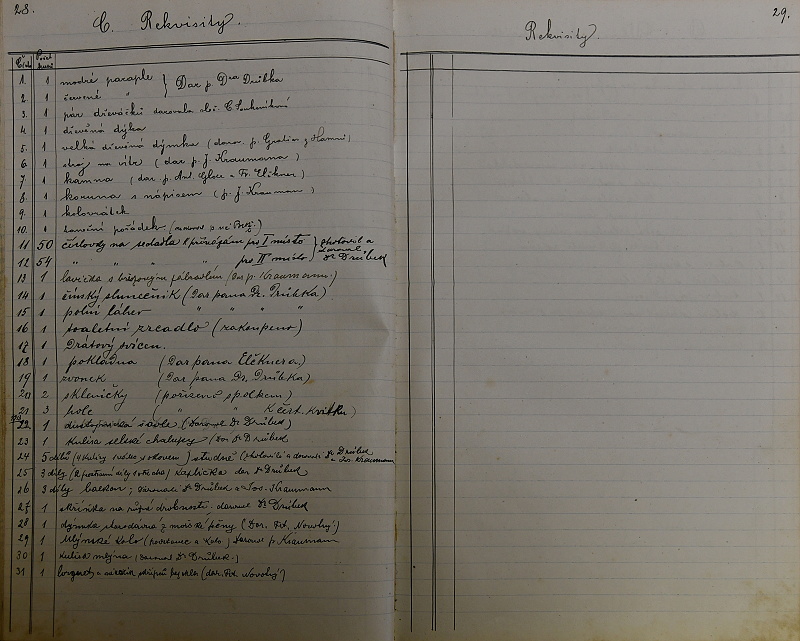 28.
C. Rekvisity.
Číslo Počet kusů
1. 1 modré paraple } Dar p. Dra Drůbka
2. 1 červené "
3. 1 pár dřeváčků darovala slč.
4. 1 dřevěná dýka
5. 1 velká dřevěná dýmka (darov. p. Gratias z Hamrů)
6. 1 stroj na vítr (dar p. J. Kraumanna)
7. 1 kamna (dar p. Ant. a Fr. Elčkner)
8. 1 koruna s nápisem (p. J. Kraumann)
9. 1 kolovrátek
10. 1 taneční pořádek
11 50 na sedadla k přívazám pro I místo } zhotovil a daroval
12 54 " " " pro II místo Dr Drůbek
13 1 lavička s březovým zábradlím (Dar p. Kraumanna)
14 1 čínský slunečník (Dar pana Dr. Drůbka)
15 1 polní láhev " " "
16 1 toaletní zrcadlo (zakoupeno)
17 1 Drátový svícen.
18 1 pokladna (Dar pana Elčknera)
19 1 zvonek (Dar pana Dr. Drůbka)
20 2 skleničky (pořízeno spolkem)
21 3 hole " " K čest. kvitku)
22 1 šavle (Daroval Dr Drůbek)
23 1 Kulisa selské chalupy (Dar Dr Drůbek)
24 5 dílů studně (zhotovili a darovali Dr Drůbek a Jos. Kraumann
25 3 díly kaplička dar Dr Drůbek
26 3 díly balkon; darovali Dr Drůbek a Jos. Kraumann
27 1 skřínka na různé drobnosti. daroval Dr Drůbek
28 1 dýmka starodávná z mořské pěny (Dar. Fr. Novotný)
29 1 Mlýnské kolo (podstavec a kolo) Daroval p. Kraumann
30 1 kulisa mlýna (daroval Dr Drůbek.)
31 1 bez skel (dar. Novotný)
29.
Rekvisity.